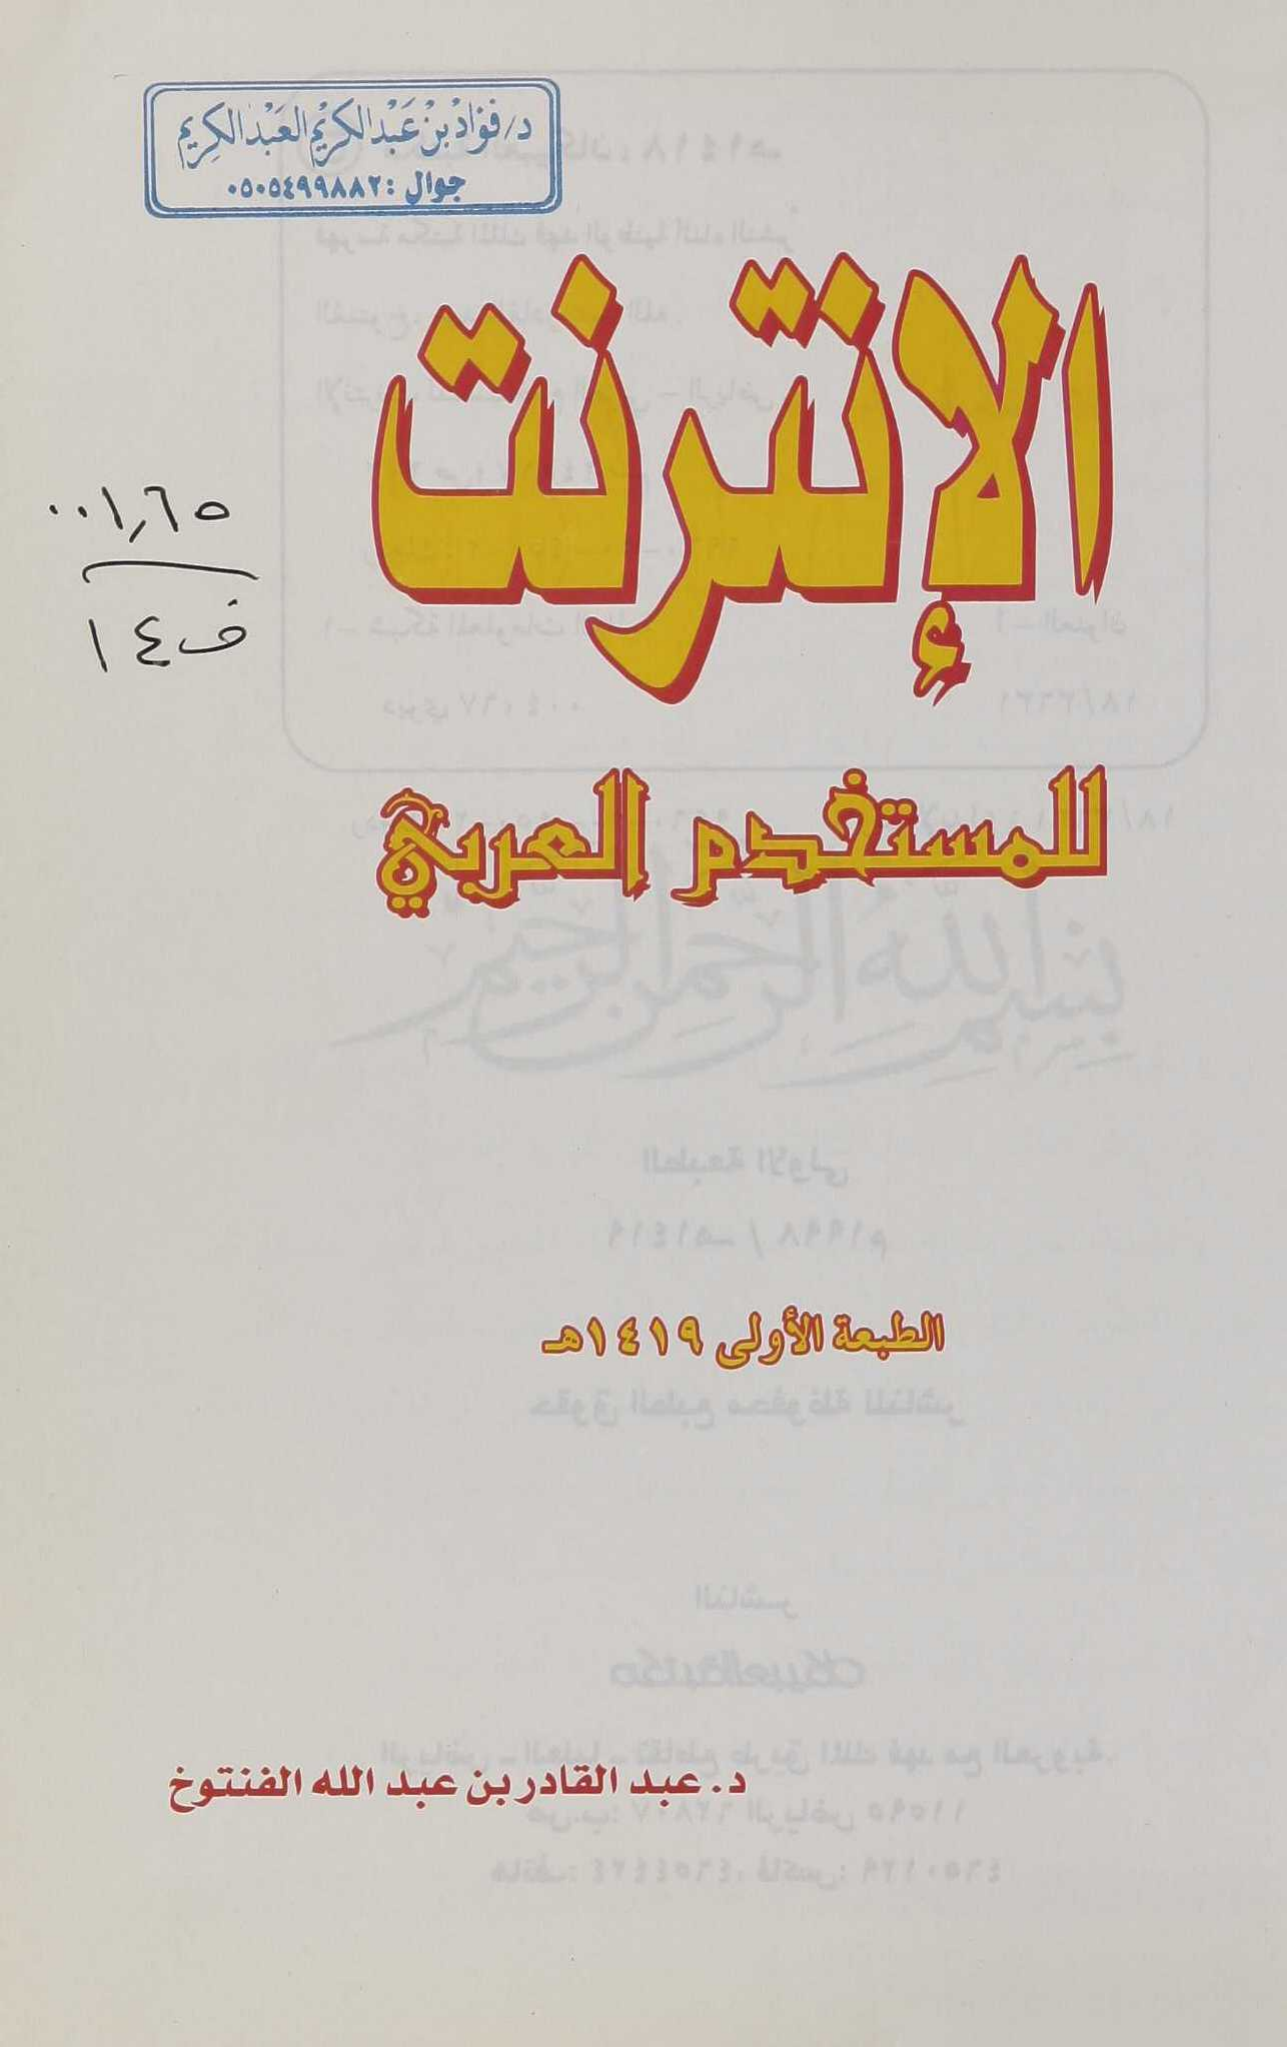 د/ فؤاد بن عبد الكريم العبد الكريم
جوال : ٠٥٠٥٤٩٩٨٨٢
الإنترنت
للمستخدم العربي
٠٠١,٦٥
ف ١٤
الطبعة الأولى ١٤١٩هـ
د. عبد القادر بن عبد الله الفنتوخ